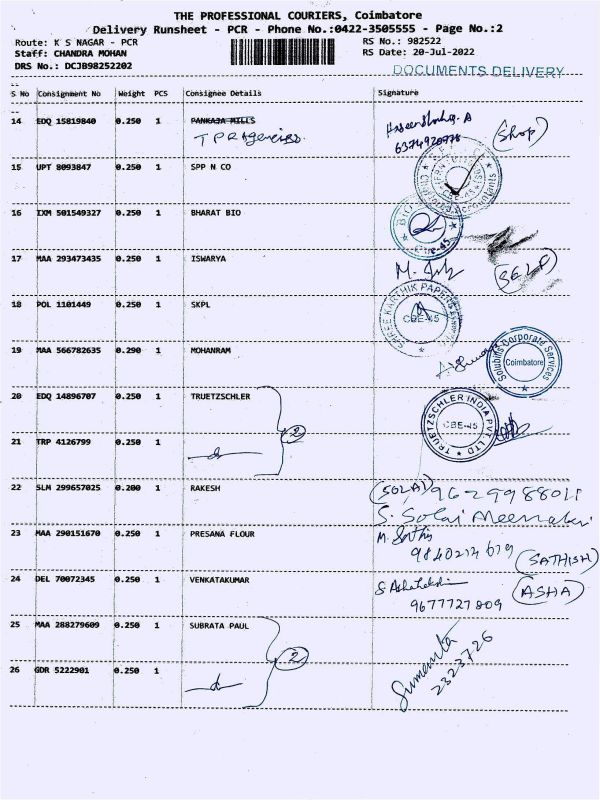 THE PROFESSIONAL COURIERS, Coimbatore
Delivery Runsheet - PCR - Phone No.:0422-3505555 - Page No.:2
Route: K S NAGAR - PCR RS No.: 982522
Staff: CHANDRA MOHAN RS Date: 20-Jul-2022
DRS No.: DCJB98252202
DOCUMENTS DELIVERY
S No Consignment No Weight PCS Consignee Details Signature
14 EDQ 15819840 0.250 1 PANKAJA MILLS
TPR Agencies. 6374920978 (Shop)
15 UPT 8093847 0.250 1 SPP N CO
Chartered Accountants
16 IXM 501549327 0.250 1 BHARAT BIO
17 MAA 293473435 0.250 1 ISWARYA (SELF)
18 POL 1101449 0.250 1 SKPL
SHREE KARTHIK PAPERS CBE-45
19 MAA 566782635 0.290 1 MOHANRAM
Corporate Services Coimbatore
20 EDQ 14896707 0.250 1 TRUETZSCHLER
TRUETZSCHLER INDIA PVT. LTD CBE-45
21 TRP 4126799 0.250 1 2
22 SLM 299657025 0.200 1 RAKESH (SOLAI) 9629988011
S. Solai Meenakshi
23 MAA 290151670 0.250 1 PRESANA FLOUR
9840214619 (SATHISH)
24 DEL 70072345 0.250 1 VENKATAKUMAR (ASHA)
9677727809
25 MAA 288279609 0.250 1 SUBRATA PAUL
2 2323726
26 GDR 5222901 0.250 1